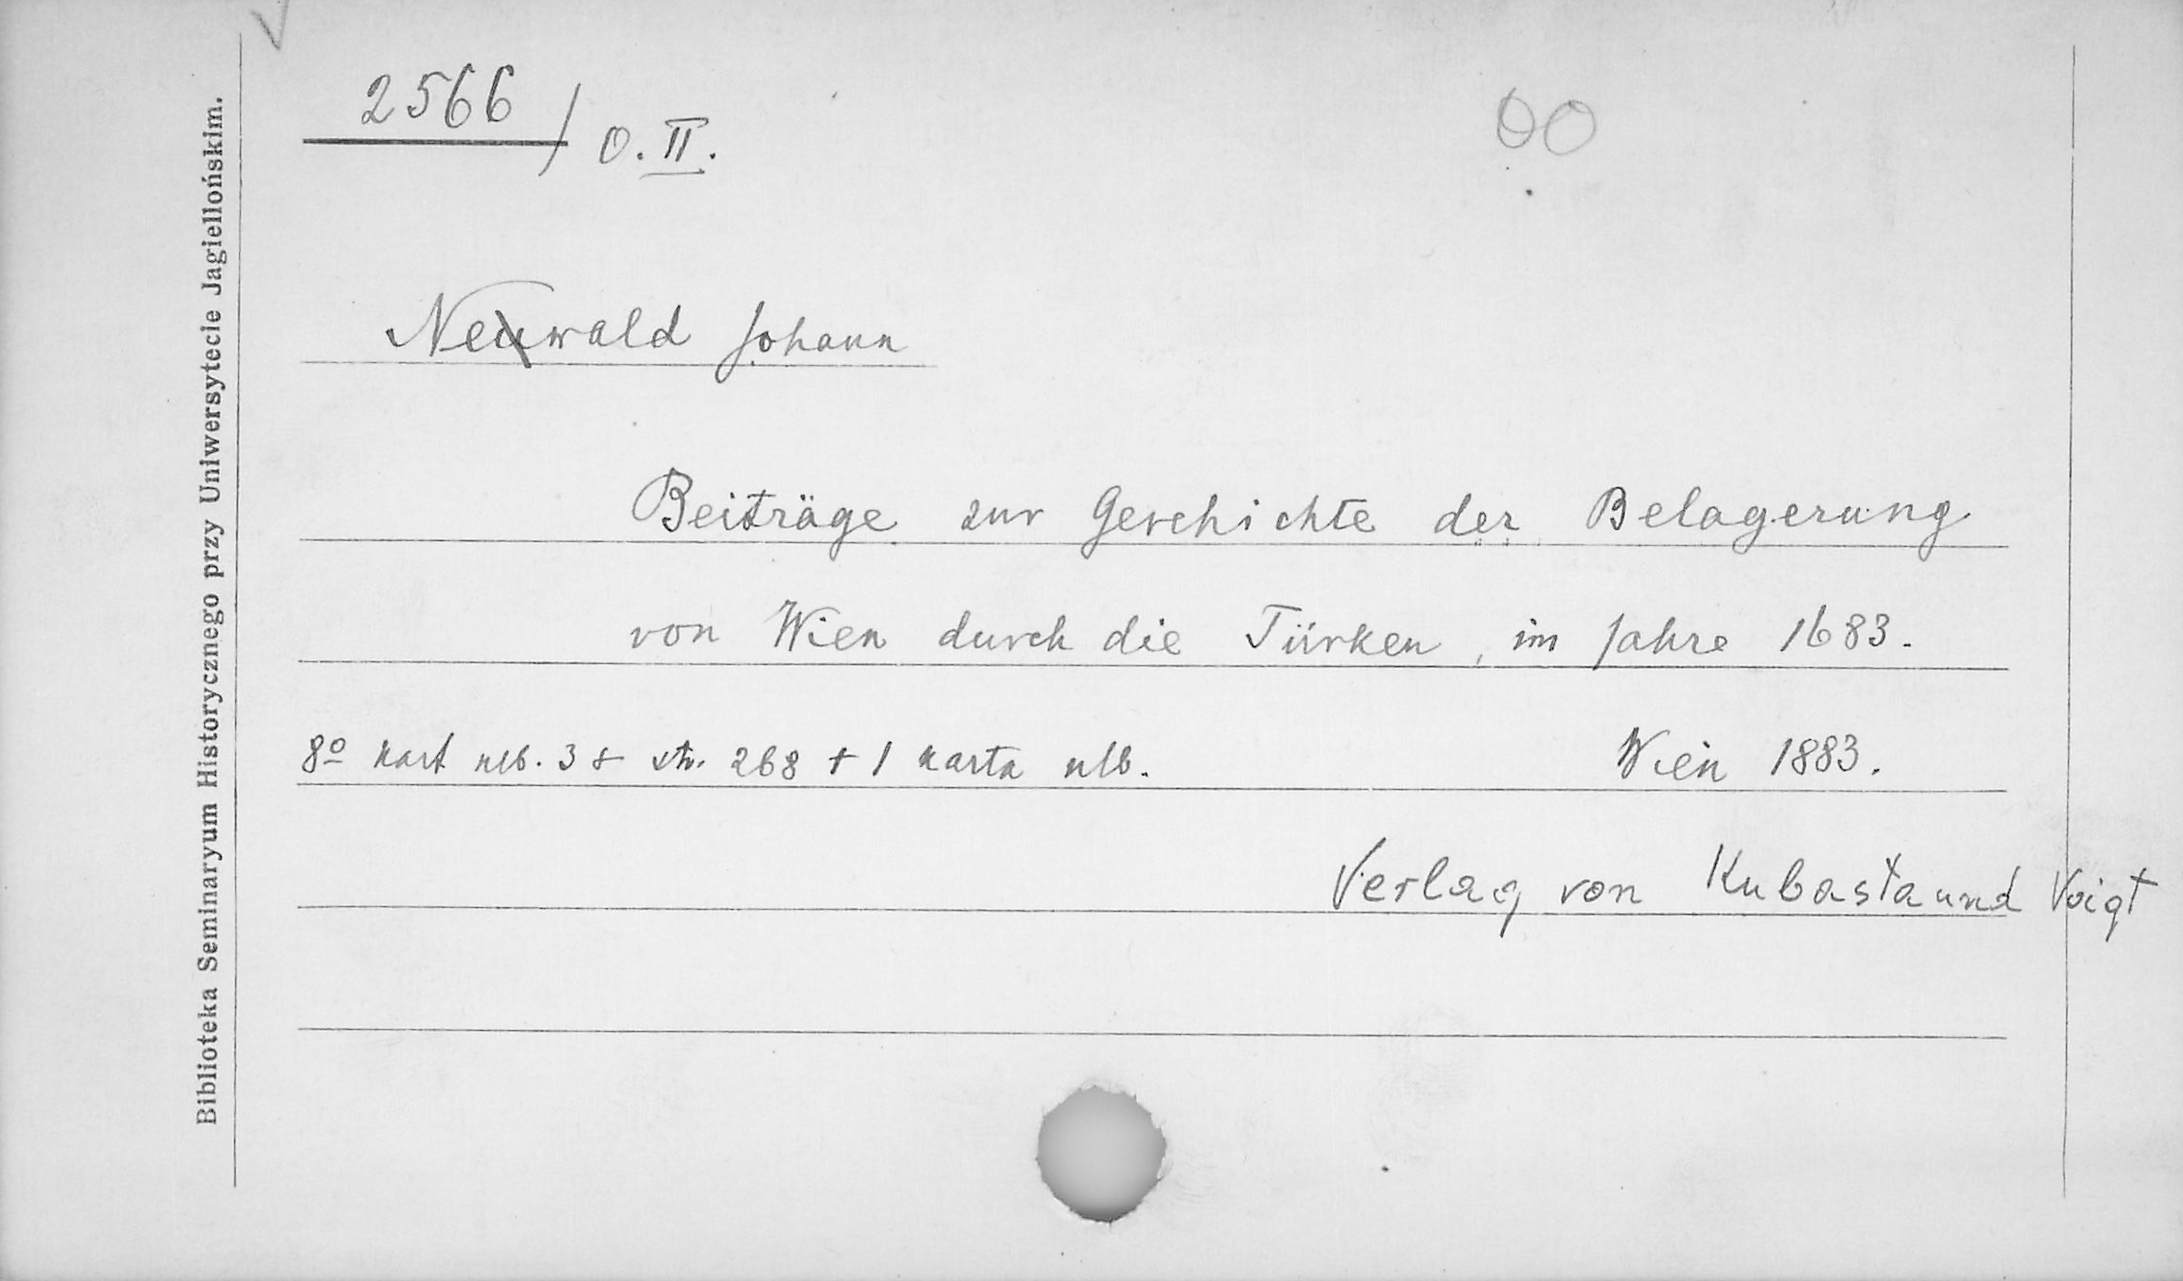 2566 / O. II.
00
Newald Johann
Beiträge zur Geschichte der Belagerung
von Wien durch die Türken, im Jahre 1683.
8º kart nlb. 3 + str. 268 + 1 karta nlb. Wien 1883.
Verlag von Kubasta und Voigt
Biblioteka Seminaryum Historycznego przy Uniwersytecie Jagiellońskim.